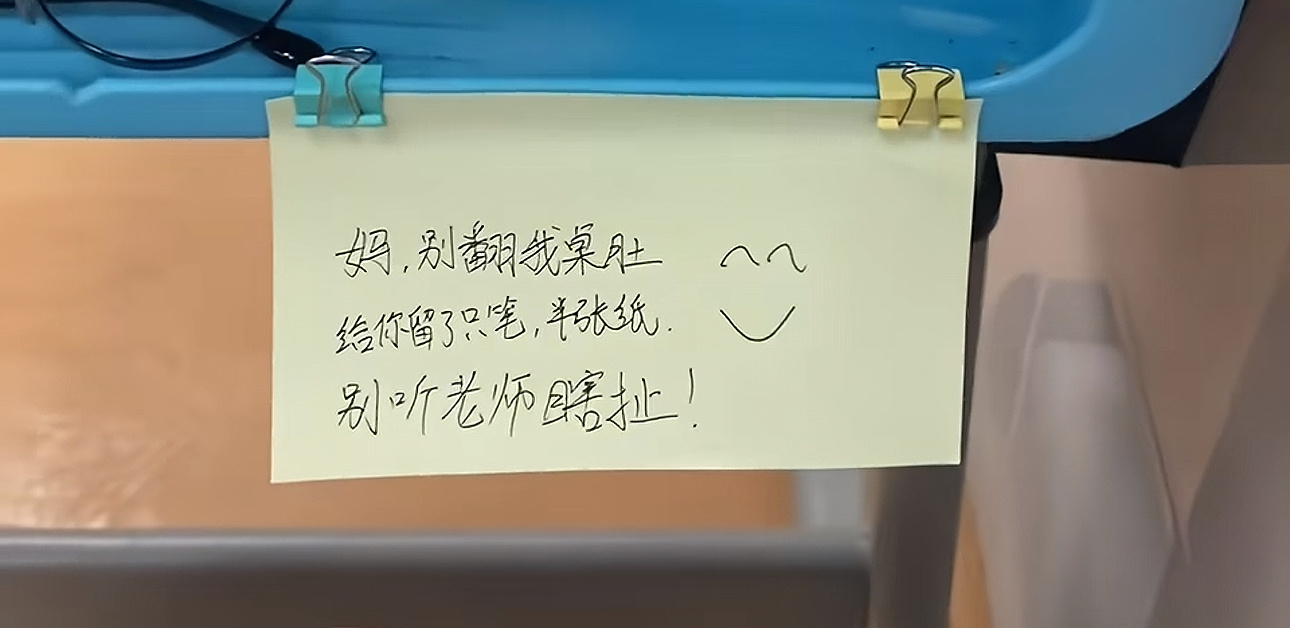 妈，别翻我桌肚
给你留了只笔，半张纸.
别听老师瞎扯！